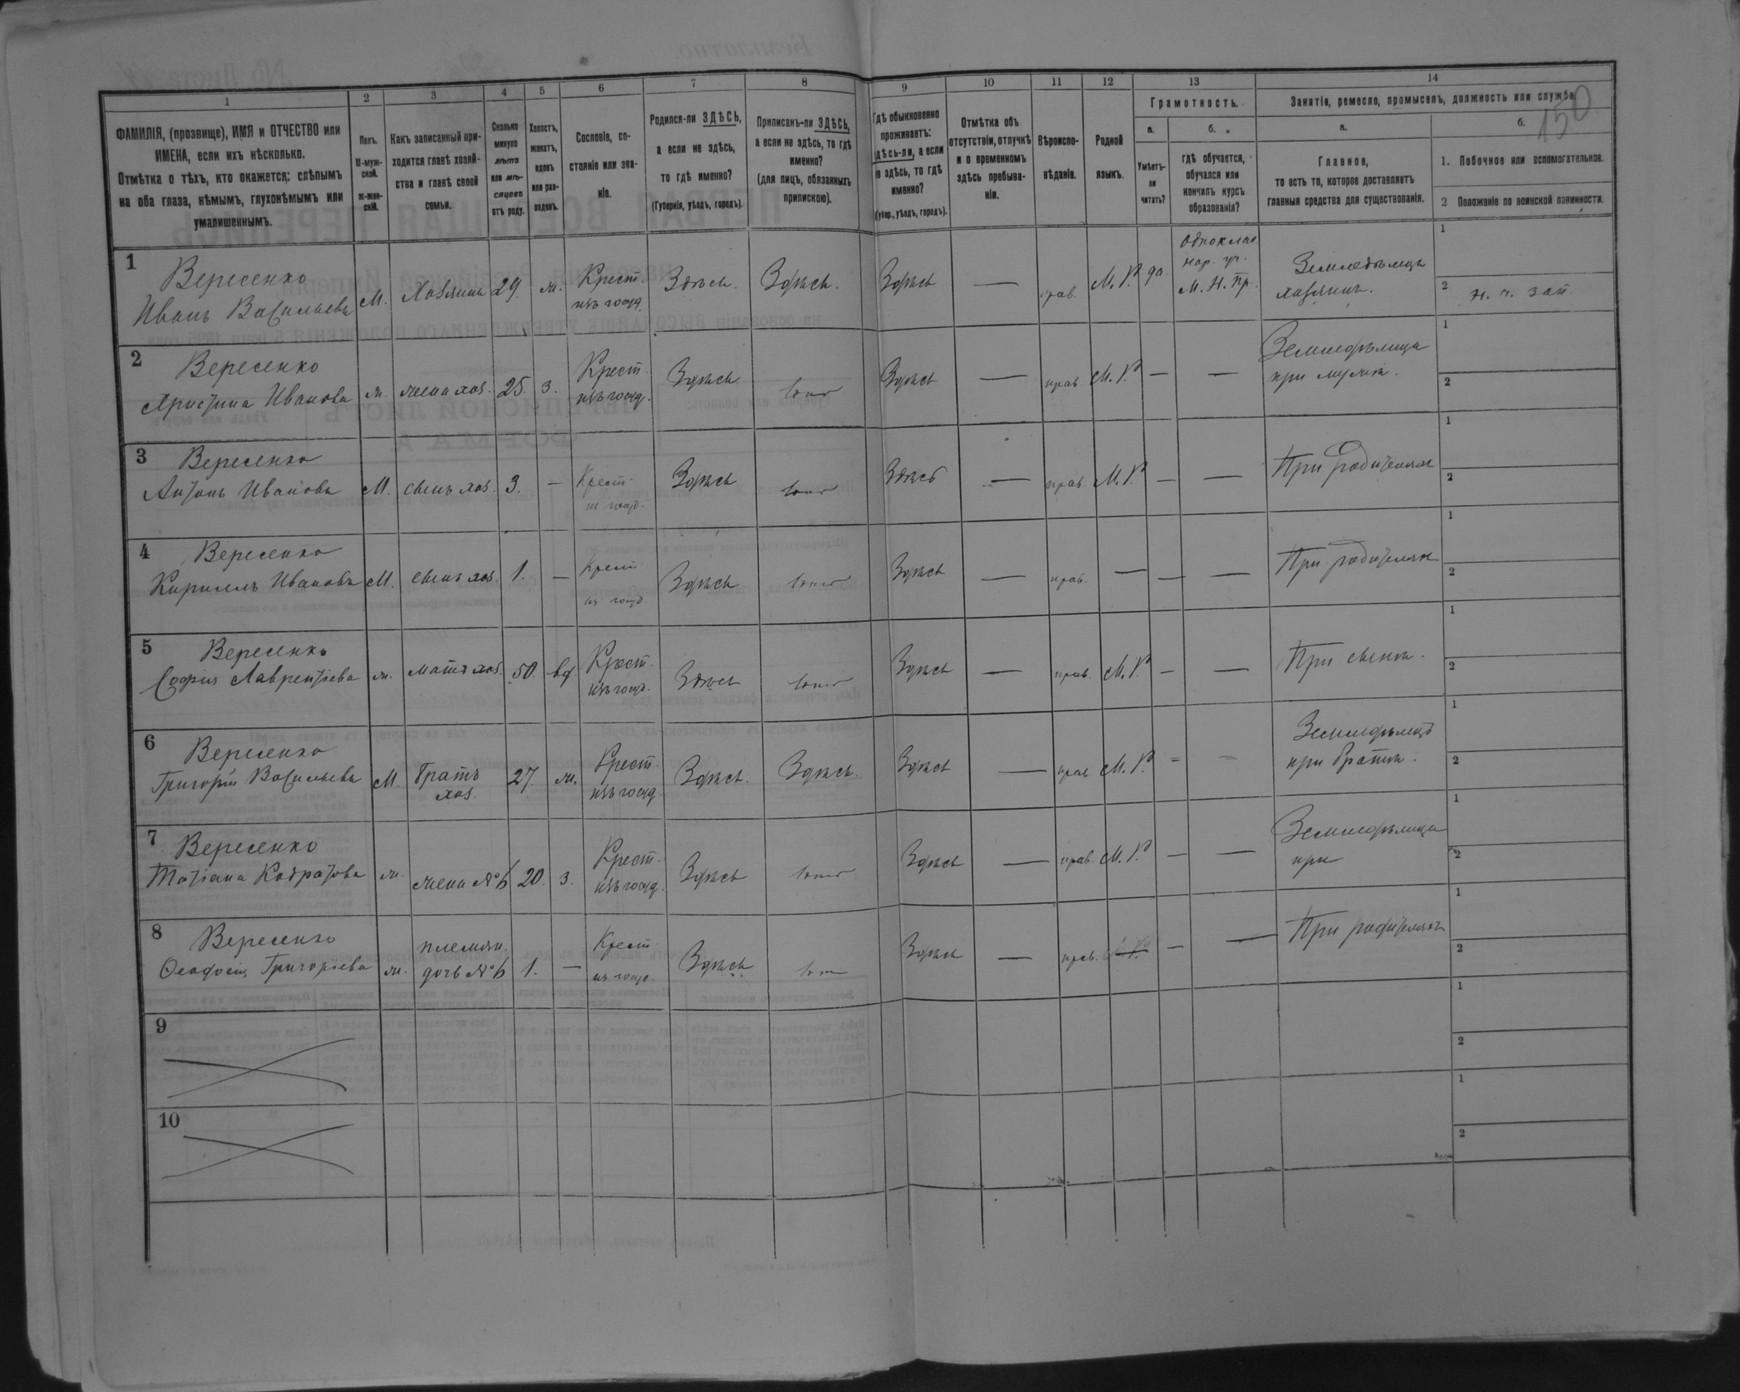 1 2 3 4 5 6 7 8 9 10 11 12 13 14
150
ФАМИЛІЯ, (прозвище), ИМЯ и ОТЧЕСТВО или
ИМЕНА, если ихъ нѣсколько.
Отмѣтка о тѣхъ, кто окажется: слѣпымъ
на оба глаза, нѣмымъ, глухонѣмымъ или
умалишеннымъ.
Полъ.
М-муж-
ской.
Ж-жен-
скій.
Какъ записанный при-
ходится главѣ хозяй-
ства и главѣ своей
семьи.
Сколько
минуло
лѣтъ
или мѣ-
сяцевъ
отъ роду.
Холостъ,
женатъ,
вдовъ
или раз-
веденъ.
Сословіе, со-
стояніе или зва-
ніе.
Родился-ли ЗДѢСЬ,
а если не здѣсь,
то гдѣ именно?
(Губернія, уѣздъ, городъ).
Приписанъ-ли ЗДѢСЬ,
а если не здѣсь, то гдѣ
именно?
(для лицъ, обязанныхъ
припискою).
Гдѣ обыкновенно
проживаетъ:
здѣсь-ли, а если
не здѣсь, то гдѣ
именно?
(Губер., уѣздъ, городъ).
Отмѣтка объ
отсутствіи, отлучкѣ
и о временномъ
здѣсь пребыва-
ніи.
Вѣроиспо-
вѣданіе.
Родной
языкъ.
Грамотность.
а.
Умѣетъ-
ли
читать?
б.
гдѣ обучается,
обучался или
кончилъ курсъ
образованія?
Занятіе, ремесло, промыселъ, должность или служба.
а.
Главное,
то есть то, которое доставляетъ
главныя средства для существованія.
б.
1. Побочное или вспомогательное.
2 Положеніе по воинской повинности.
1
Вересенко
Иванъ Васильевъ М. Хозяинъ 29. ж. Крест. изъ госуд. Здѣсь. Здѣсь. Здѣсь — прав. М. Р. да.
Однокла
нар. уч.
М. Н. Пр.
Земледѣлецъ
хозяинъ.
1
2 н. ч. зап
2
Вересенко
Христина Иванова ж. жена хоз. 25. з. Крест. изъ госуд. Здѣсь Здѣсь — прав. М. Р. — —
Земледѣлица
при мужѣ.
1
2
3
Вересенко
Антонъ Ивановъ М. сынъ хоз. 3. — Крест. Здѣсь Здѣсь — прав. М. Р. — — При родителяхъ
1
2
4
Вересенко
Кириллъ Ивановъ М. сынъ хоз. 1. — Крест. из госуд. Здѣсь Здѣсь — прав. — — — При родителяхъ
1
2
5
Вересенко
Софія Лаврентіева ж. мать хоз. 50. вд. Крест. изъ госуд. Здѣсь Здѣсь — прав. М. Р. — — При сынѣ.
1
2
6
Вересенко
Григорій Васильевъ М. Братъ хоз. 27. ж. Крест. изъ госуд. Здѣсь. Здѣсь. Здѣсь — прав. М. Р. — —
при братѣ.
1
2
7
Вересенко
Татіана Кодратова ж. жена № 6 20. з. Крест. изъ госуд. Здѣсь Здѣсь — прав. М. Р. — —
Земледѣлица
при
1
2
8
Вересенко
Ѳеодосія Григоріева ж. племян. дочь № 6 1. — Крест. из госуд. Здѣсь Здѣсь — прав. — — При родителяхъ
1
2
9
1
2
10
1
2